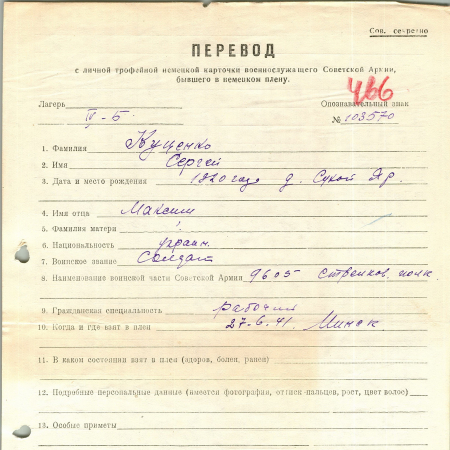 Сов. секретно
ПЕРЕВОД
с личной трофейной немецкой карточки военнослужащего Советской Армии,
бывшего в немецком плену.
466
Лагерь
Опознавательный знак
IV-Б
№ 103570
1. Фамилия Куценко
2. Имя Сергей
3. Дата и место рождения 1920 года д. Сухой Яр.
4. Имя отца Максим
5. Фамилия матери
6. Национальность украин.
7. Воинское звание Солдат
8. Наименование воинской части Советской Армии 9605 стрелков. полк.
9. Гражданская специальность рабочий
10. Когда и где взят в плен 27.6.41. Минск.
11. В каком состоянии взят в плен (здоров, болен, ранен)
12. Подробные персональные данные (имеется фотография, оттиск пальцев, рост, цвет волос)
13. Особые приметы